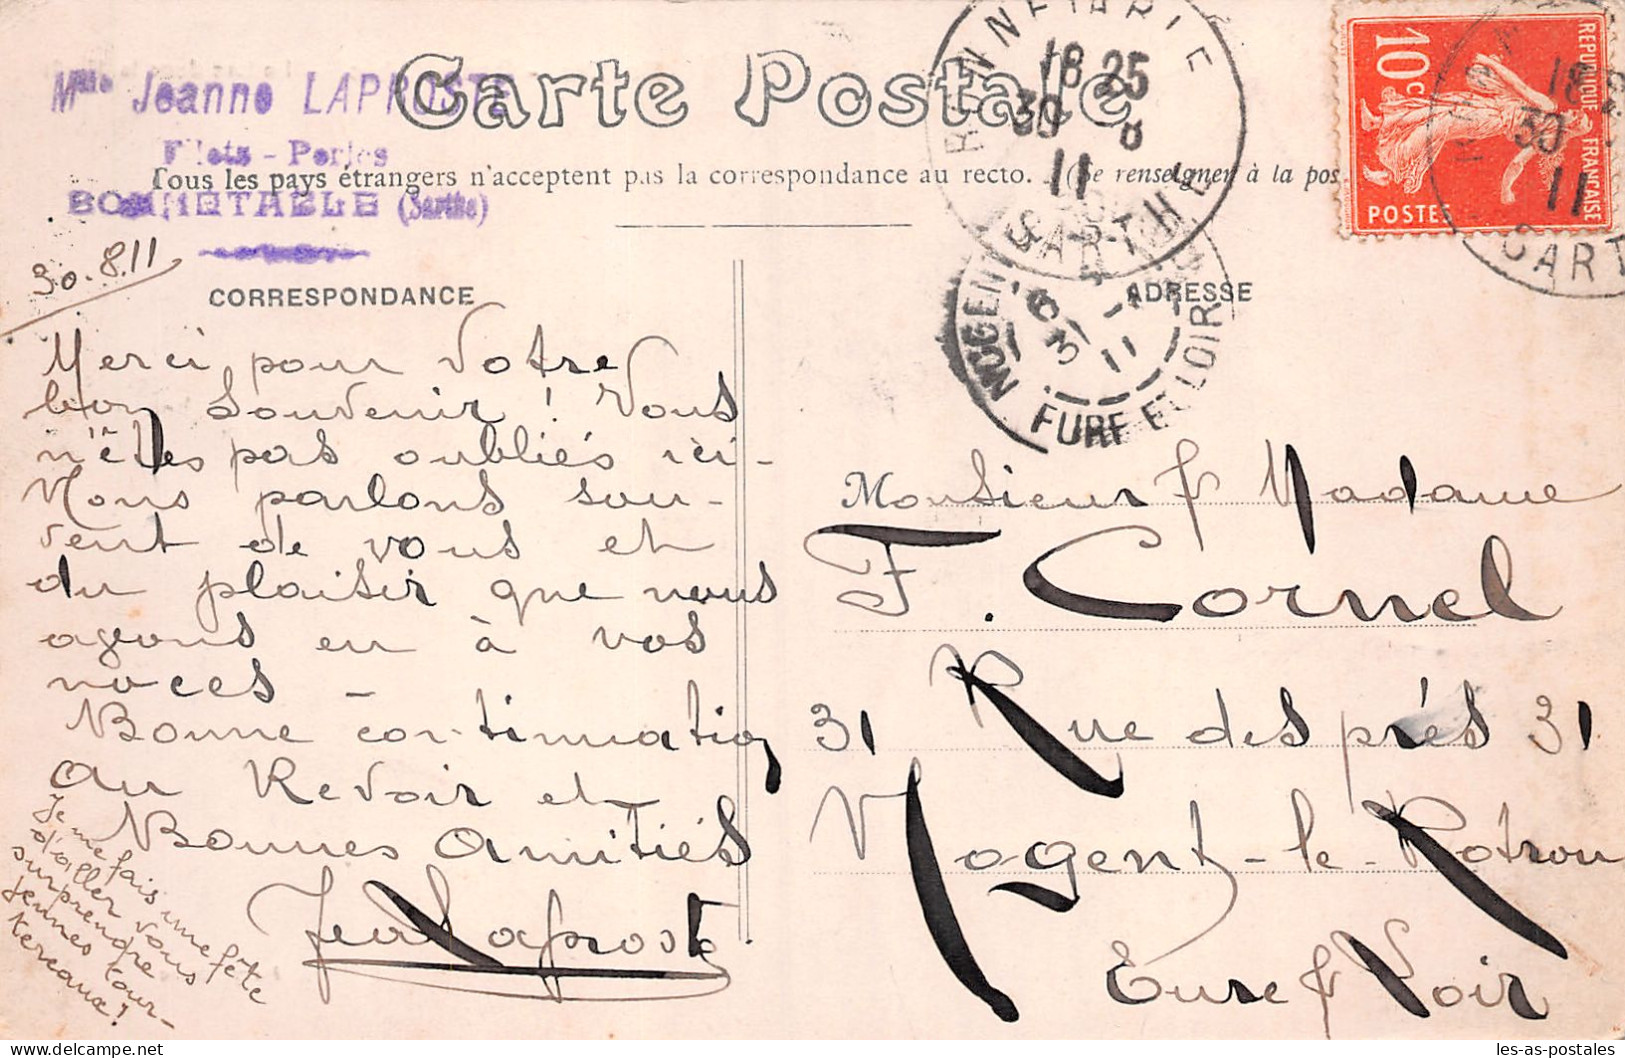 Carte Postale
Mlle Jeanne LAPROSTE
Filets - Perles
BONNÉTABLE (Sarthe)
Tous les pays étrangers n'acceptent pas la correspondance au recto. (Se renseigner à la pos
18 25
30 -8
11
SARTHE
REPUBLIQUE FRANÇAISE
10c
POSTES
18
30
11
SART
NOGENT
31
11
EURE ET LOIR
30.8.11
CORRESPONDANCE
ADRESSE
Merci pour votre
bon souvenir ! Vous
n'êtes pas oubliés ici -
Nous parlons sou-
vent de vous et
du plaisir que nous
avons eu à vos
noces -
Bonne continuation
au Revoir et
Bonnes amitiés
Jeanne Laproste
Je me fais une fête
d'aller vous
surprendre
jeunes tour-
tereaux !
Monsieur & Madame
F. Cornel
31 Rue des prés 31
Nogent-le-Rotrou
Eure & Loir
les-as-postales